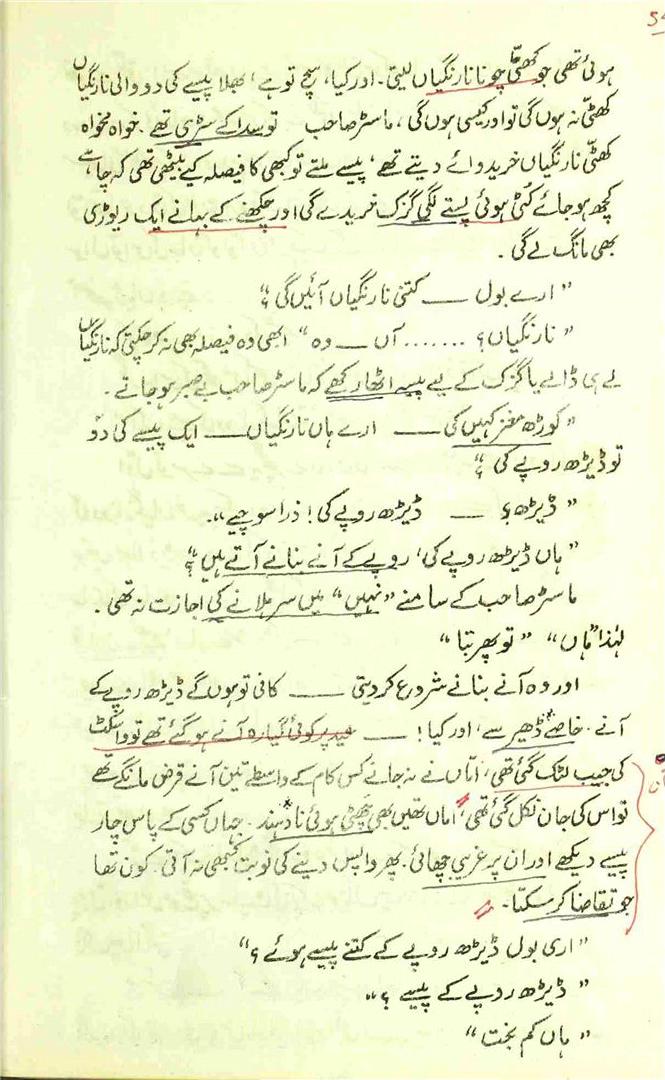 54
ہوئی تھی جو کھٹی چونا نارنگیاں لیتی۔ اور کیا، سچ تو ہے، بھلا پیسے کی دو والی نارنگیاں
کھٹی نہ ہوں گی تو اور کیسی ہوں گی، ماسٹر صاحب تو سدا کے سڑی تھے۔ خواہ مخواہ
کھٹی نارنگیاں خریدوائے دیتے تھے، پیسے ملتے تو کبھی کا فیصلہ کیے بیٹھی تھی کہ چاہے
کچھ ہو جائے کُٹی ہوئی پستے لگی گزک خریدے گی اور چکھنے کے بہانے ایک ریوڑی
بھی مانگ لے گی۔
"ارے بول ـــــ کتنی نارنگیاں آئیں گی؟"
"نارنگیاں؟ ....... آں ـــــ وہ" ابھی وہ فیصلہ بھی نہ کر چکتی کہ نارنگیاں
لے ہی ڈالے یا گزک کے لیے پیسہ اٹھا رکھے کہ ماسٹر صاحب بے صبر ہو جاتے۔
"کوڑھ مغز کہیں کی ـــــ ارے ہاں نارنگیاں ـــــ ایک پیسے کی دو
تو ڈیڑھ روپے کی؟"
"ڈیڑھ؟ ـــــ ڈیڑھ روپے کی! ذرا سوچیے"۔
"ہاں ڈیڑھ روپے کی، روپے کے آنے بنانے آتے ہیں؟"
ماسٹر صاحب کے سامنے "نہیں" میں سر ہلانے کی اجازت نہ تھی۔
لہٰذا "ہاں" "تو پھر بتا"
اور وہ آنے بنانے شروع کر دیتی ـــــ کافی تو ہوں گے ڈیڑھ روپے کے
آنے۔ خاصے ڈھیر سے، اور کیا! ـــــ عید پر کوئی گیارہ آنے ہو گئے تھے تو واسکٹ
کی جیب لٹک گئی تھی، اماں نے نہ جانے کس کام کے واسطے تین آنے قرض مانگے تھے
تو اس کی جان نکل گئی تھی، اماں تھیں بھی چھٹی ہوئی نادہند۔ جہاں کسی کے پاس چار
پیسے دیکھے اور ان پر غریبی چھائی۔ پھر واپس دینے کی نوبت کبھی نہ آتی۔ کون تھا
جو تقاضا کر سکتا۔
"اری بول ڈیڑھ روپے کے کتنے پیسے ہوئے؟"
"ڈیڑھ روپے کے پیسے؟"
"ہاں کم بخت"